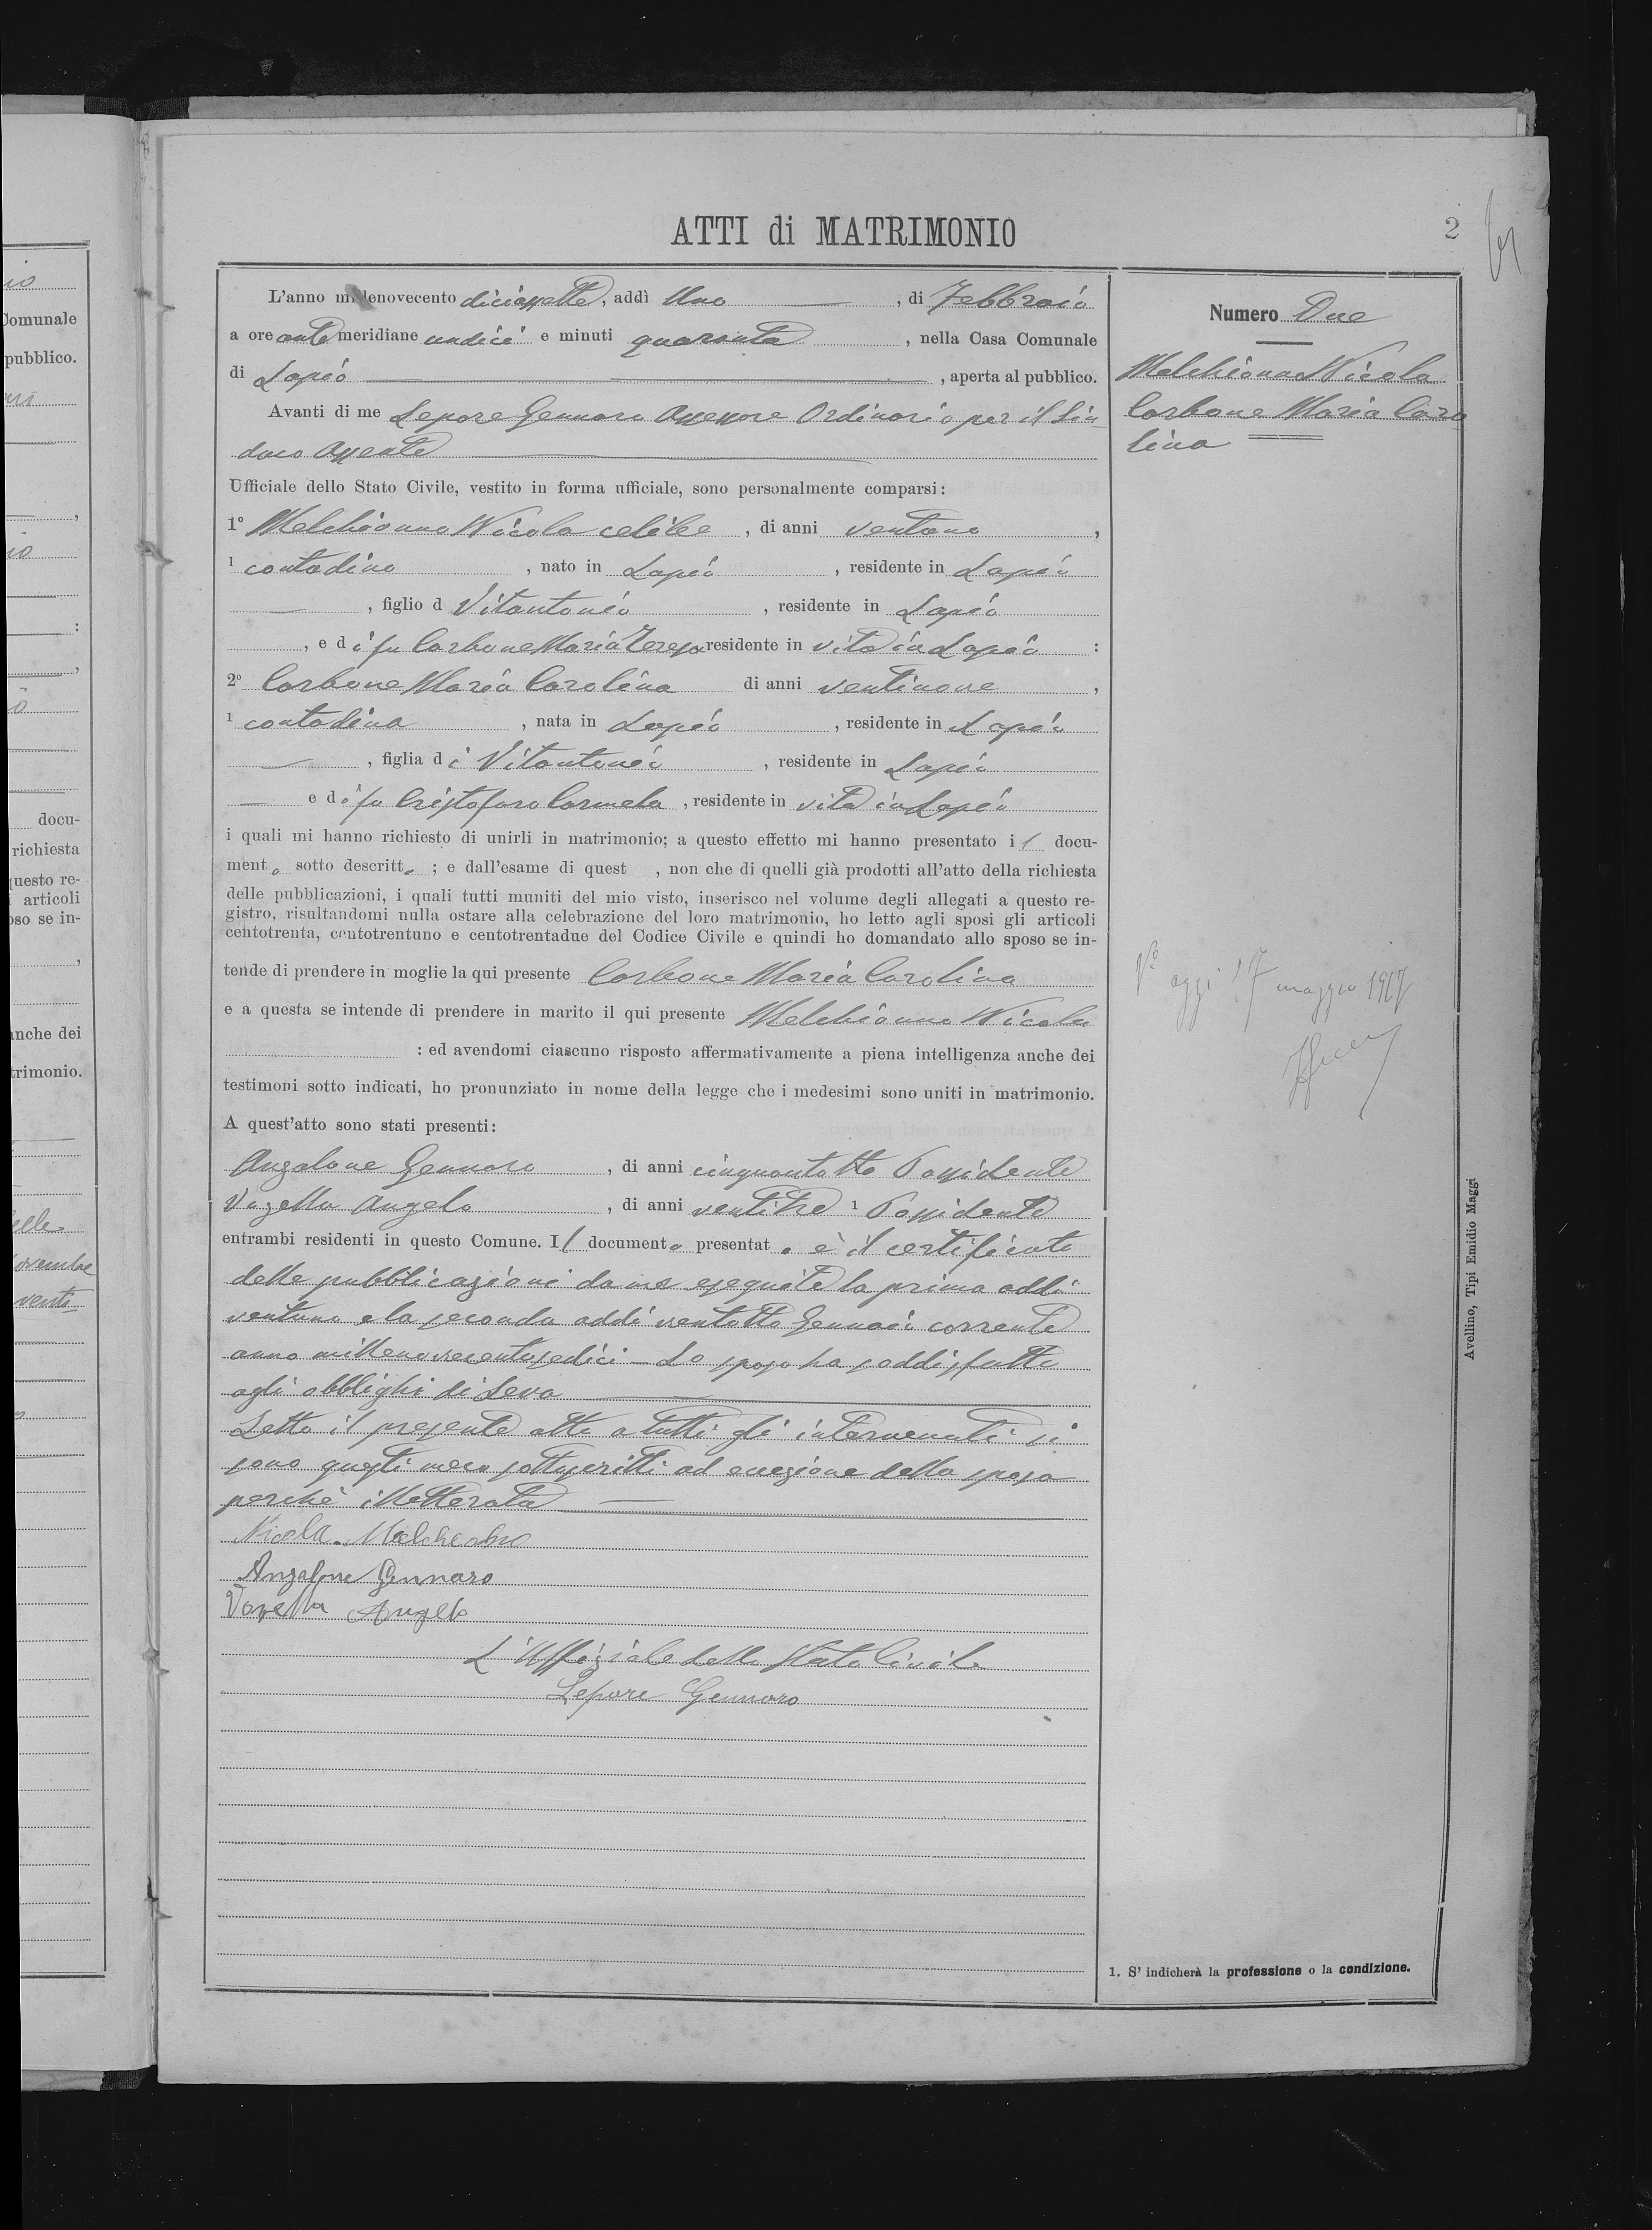 ATTI di MATRIMONIO
2
L'anno millenovecento diciassette, addì Uno, di Febbraio
a ore antemeridiane undici e minuti quaranta, nella Casa Comunale
di Lapio, aperta al pubblico.
Avanti di me Lepore Gennaro Assessore Ordinario per il Sin-
daco assente
Ufficiale dello Stato Civile, vestito in forma ufficiale, sono personalmente comparsi:
1° Melchionna Nicola celibe, di anni ventuno,
1 contadino, nato in Lapio, residente in Lapio
, figlio d Vitantonio, residente in Lapio
, e di fu Carbone Maria Teresa residente in vita in Lapio :
2° Carbone Maria Carolina di anni ventinove,
1 contadina, nata in Lapio, residente in Lapio
, figlia di Vitantonio, residente in Lapio
e di fu Cristofaro Carmela, residente in vita in Lapio
i quali mi hanno richiesto di unirli in matrimonio; a questo effetto mi hanno presentato il docu-
mento sotto descritto; e dall'esame di quest , non che di quelli già prodotti all'atto della richiesta
delle pubblicazioni, i quali tutti muniti del mio visto, inserisco nel volume degli allegati a questo re-
gistro, risultandomi nulla ostare alla celebrazione del loro matrimonio, ho letto agli sposi gli articoli
centotrenta, centotrentuno e centotrentadue del Codice Civile e quindi ho domandato allo sposo se in-
tende di prendere in moglie la qui presente Carbone Maria Carolina
e a questa se intende di prendere in marito il qui presente Melchionna Nicola
: ed avendomi ciascuno risposto affermativamente a piena intelligenza anche dei
testimoni sotto indicati, ho pronunziato in nome della legge che i medesimi sono uniti in matrimonio.
A quest'atto sono stati presenti:
Anzalone Gennaro, di anni cinquantotto Possidente
Vozella Angelo, di anni ventitre 1 Possidente
entrambi residenti in questo Comune. Il documento presentato è il certificato
delle pubblicazioni da me eseguite la prima addì
ventuno e la seconda addì ventotto Gennaio corrente
anno millenovecentosedici - Lo sposo ha soddisfatto
agli obblighi di Leva
Letto il presente atto a tutti gli intervenuti si
sono questi meco sottoscritti ad eccezione della sposa
perchè illetterata
Nicola Melchionna
Anzalone Gennaro
Vozella Angelo
L'Uffiziale dello Stato Civile
Lepore Gennaro
Numero Due
Melchionna Nicola
Carbone Maria Caro
lina
V° oggi 17 maggio 1917
1. S' indicherà la professione o la condizione.
Avellino, Tipi Emidio Maggi
io
Comunale
pubblico.
docu-
richiesta
questo re-
articoli
oso se in-
anche dei
trimonio.
elle
ovembre
venti